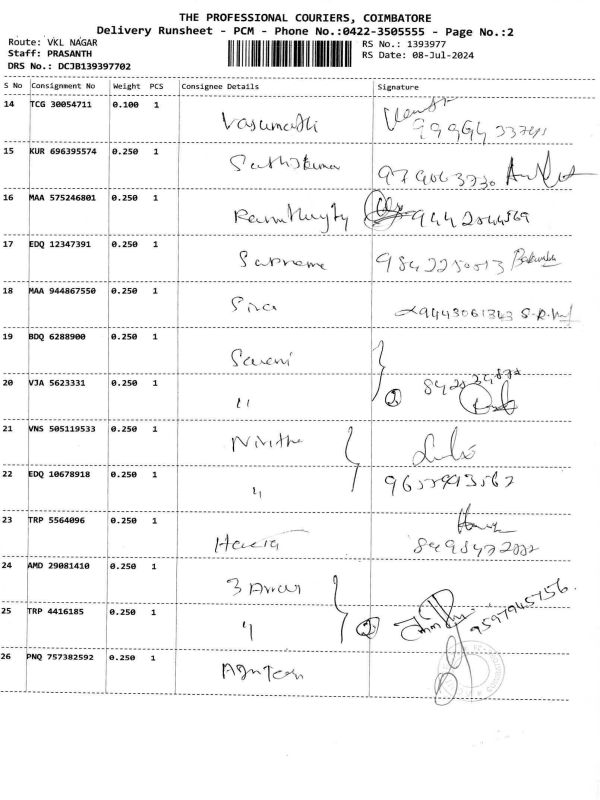 THE PROFESSIONAL COURIERS, COIMBATORE
Delivery Runsheet - PCM - Phone No.:0422-3505555 - Page No.:2
Route: VKL NAGAR
Staff: PRASANTH
DRS No.: DCJB139397702
RS No.: 1393977
RS Date: 08-Jul-2024
S No Consignment No Weight PCS Consignee Details Signature
14 TCG 30054711 0.100 1 Vasumathi
15 KUR 696395574 0.250 1 Sathiskumar 9790637730
16 MAA 575246801 0.250 1
17 EDQ 12347391 0.250 1 Supreme
18 MAA 944867550 0.250 1 Siva 9443061343 S.R.
19 BDQ 6288900 0.250 1 Sarani
20 VJA 5623331 0.250 1 " 2
21 VNS 505119533 0.250 1 Nivitha
22 EDQ 10678918 0.250 1 "
23 TRP 5564096 0.250 1
24 AMD 29081410 0.250 1 3
25 TRP 4416185 0.250 1 " 2 9597945756.
26 PNQ 757382592 0.250 1